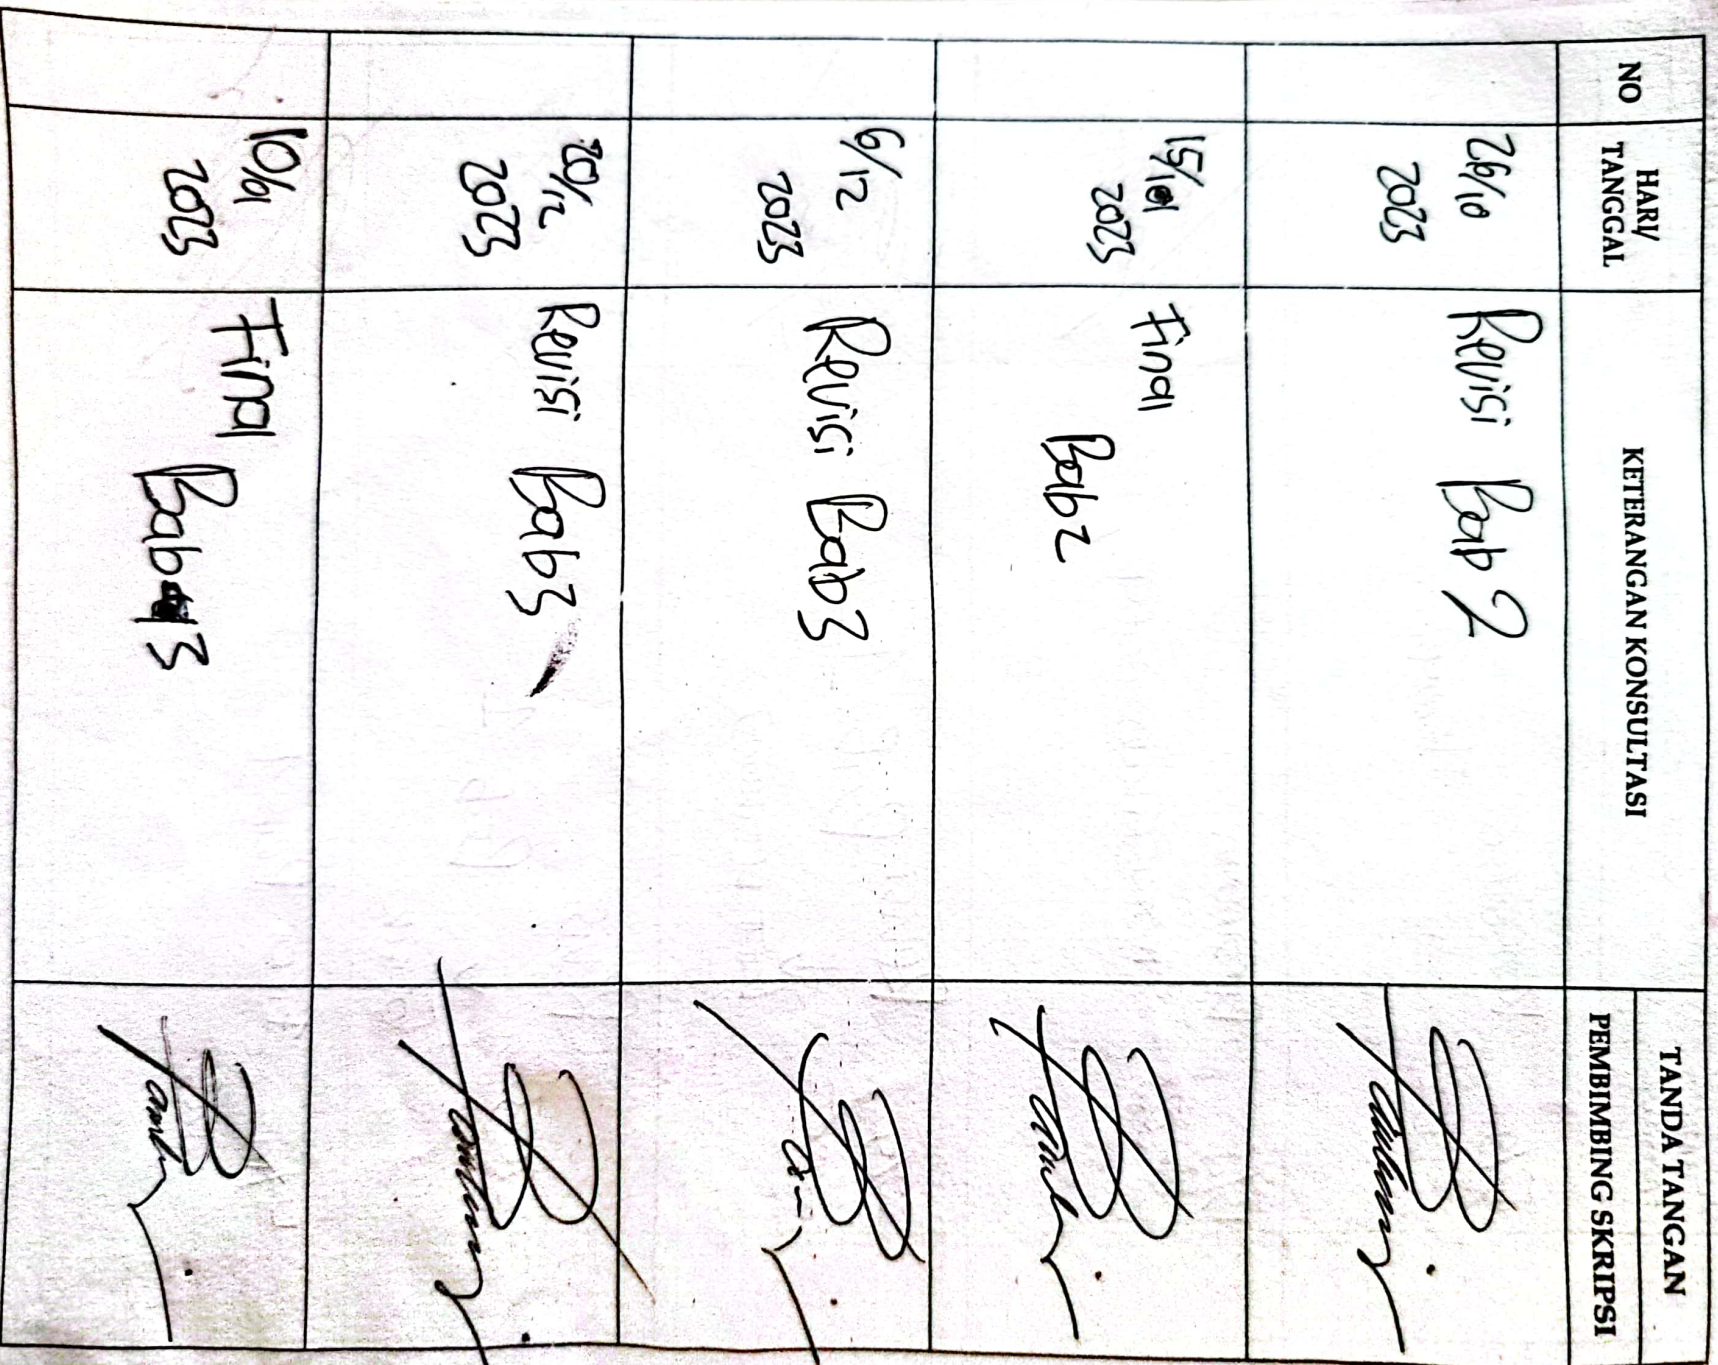 NO
HARI/
TANGGAL
KETERANGAN KONSULTASI
TANDA TANGAN
PEMBIMBING SKRIPSI
26/10
2023
Revisi Bab 2
2023
Final
Bab 2
6/12
2023
Revisi Bab 3
20/12
2023
Revisi Bab 3
10/01
2023
Final Bab 3